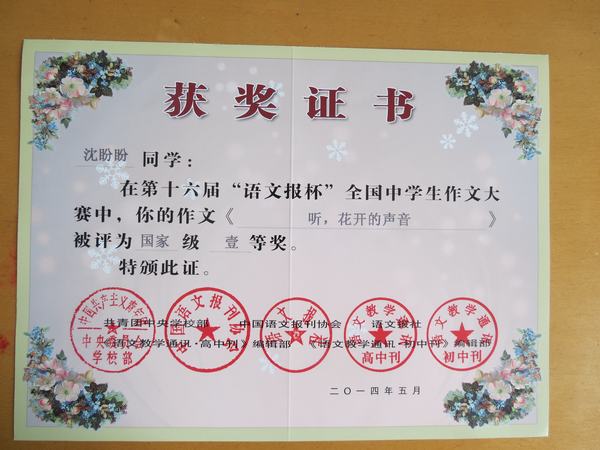 获奖证书
沈盼盼 同学：
在第十六届“语文报杯”全国中学生作文大
赛中，你的作文《 听，花开的声音 》
被评为 国家 级 壹 等奖。
特颁此证。
共青团中央学校部 中国语文报刊协会 语文报社
《语文教学通讯·高中刊》编辑部 《语文教学通讯·初中刊》编辑部
中国共产主义青年团
中央
学校部
中国语文报刊协会
语文报社
语文教学通讯
高中刊
语文教学通讯
初中刊
二〇一四年五月